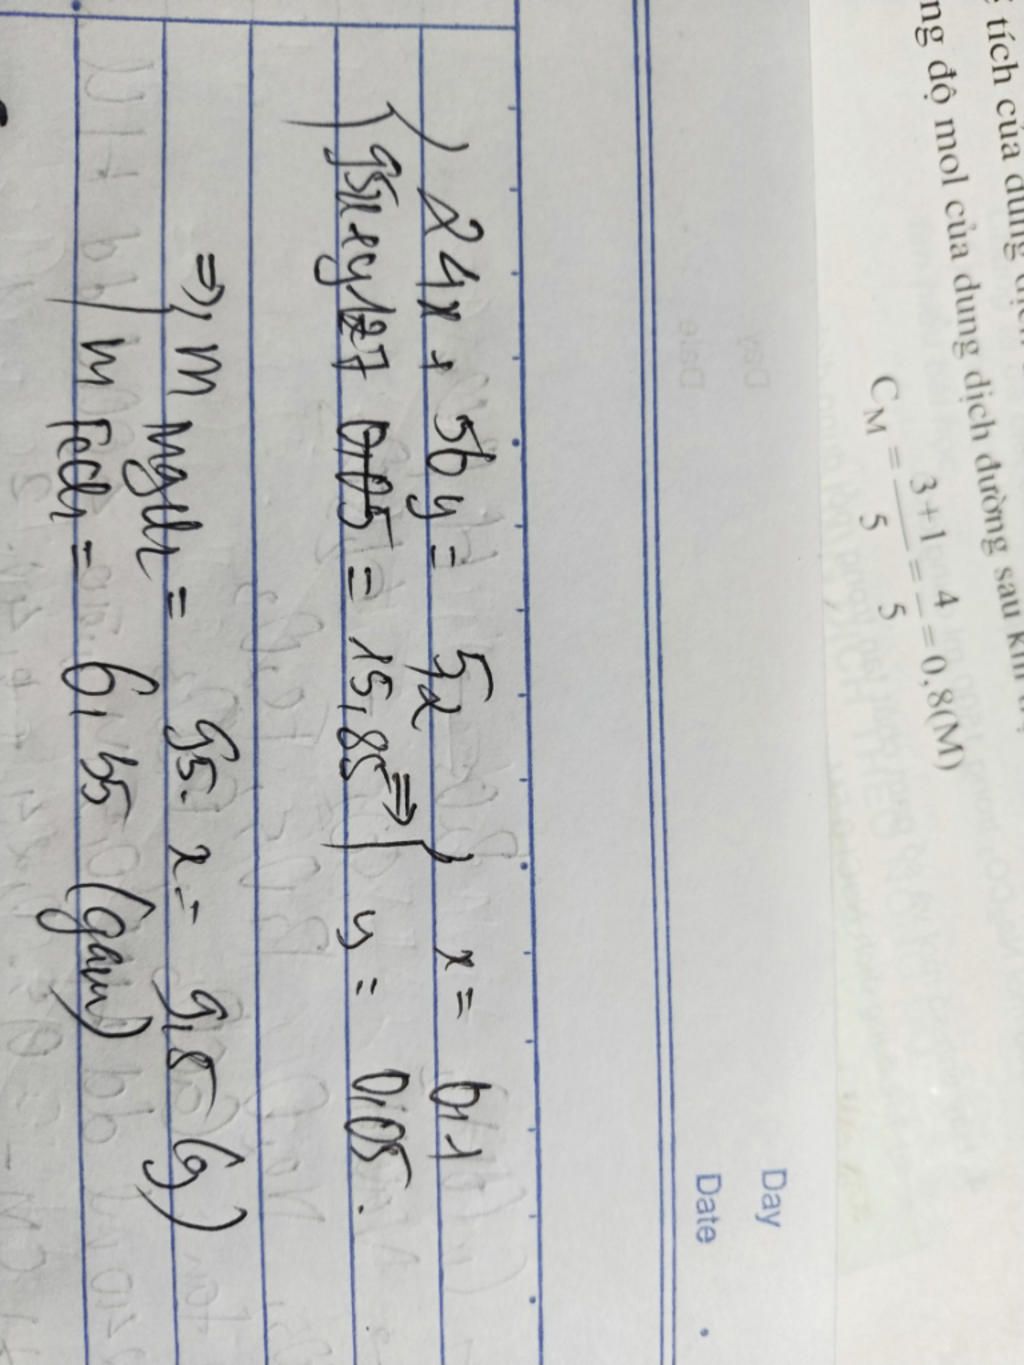 ể tích của dung dịch
ng độ mol của dung dịch đường sau khi
C_M = (3+1)/5 = 4/5 = 0,8(M)
Day
Date
{ 24x + 56y = 5,2
{ 95x + y127 = 15,85 => { x = 0,1
y = 0,05.
=> { m MgCl2 = 95. x = 9,5 (g)
{ m FeCl2 = 6,35 (gam)